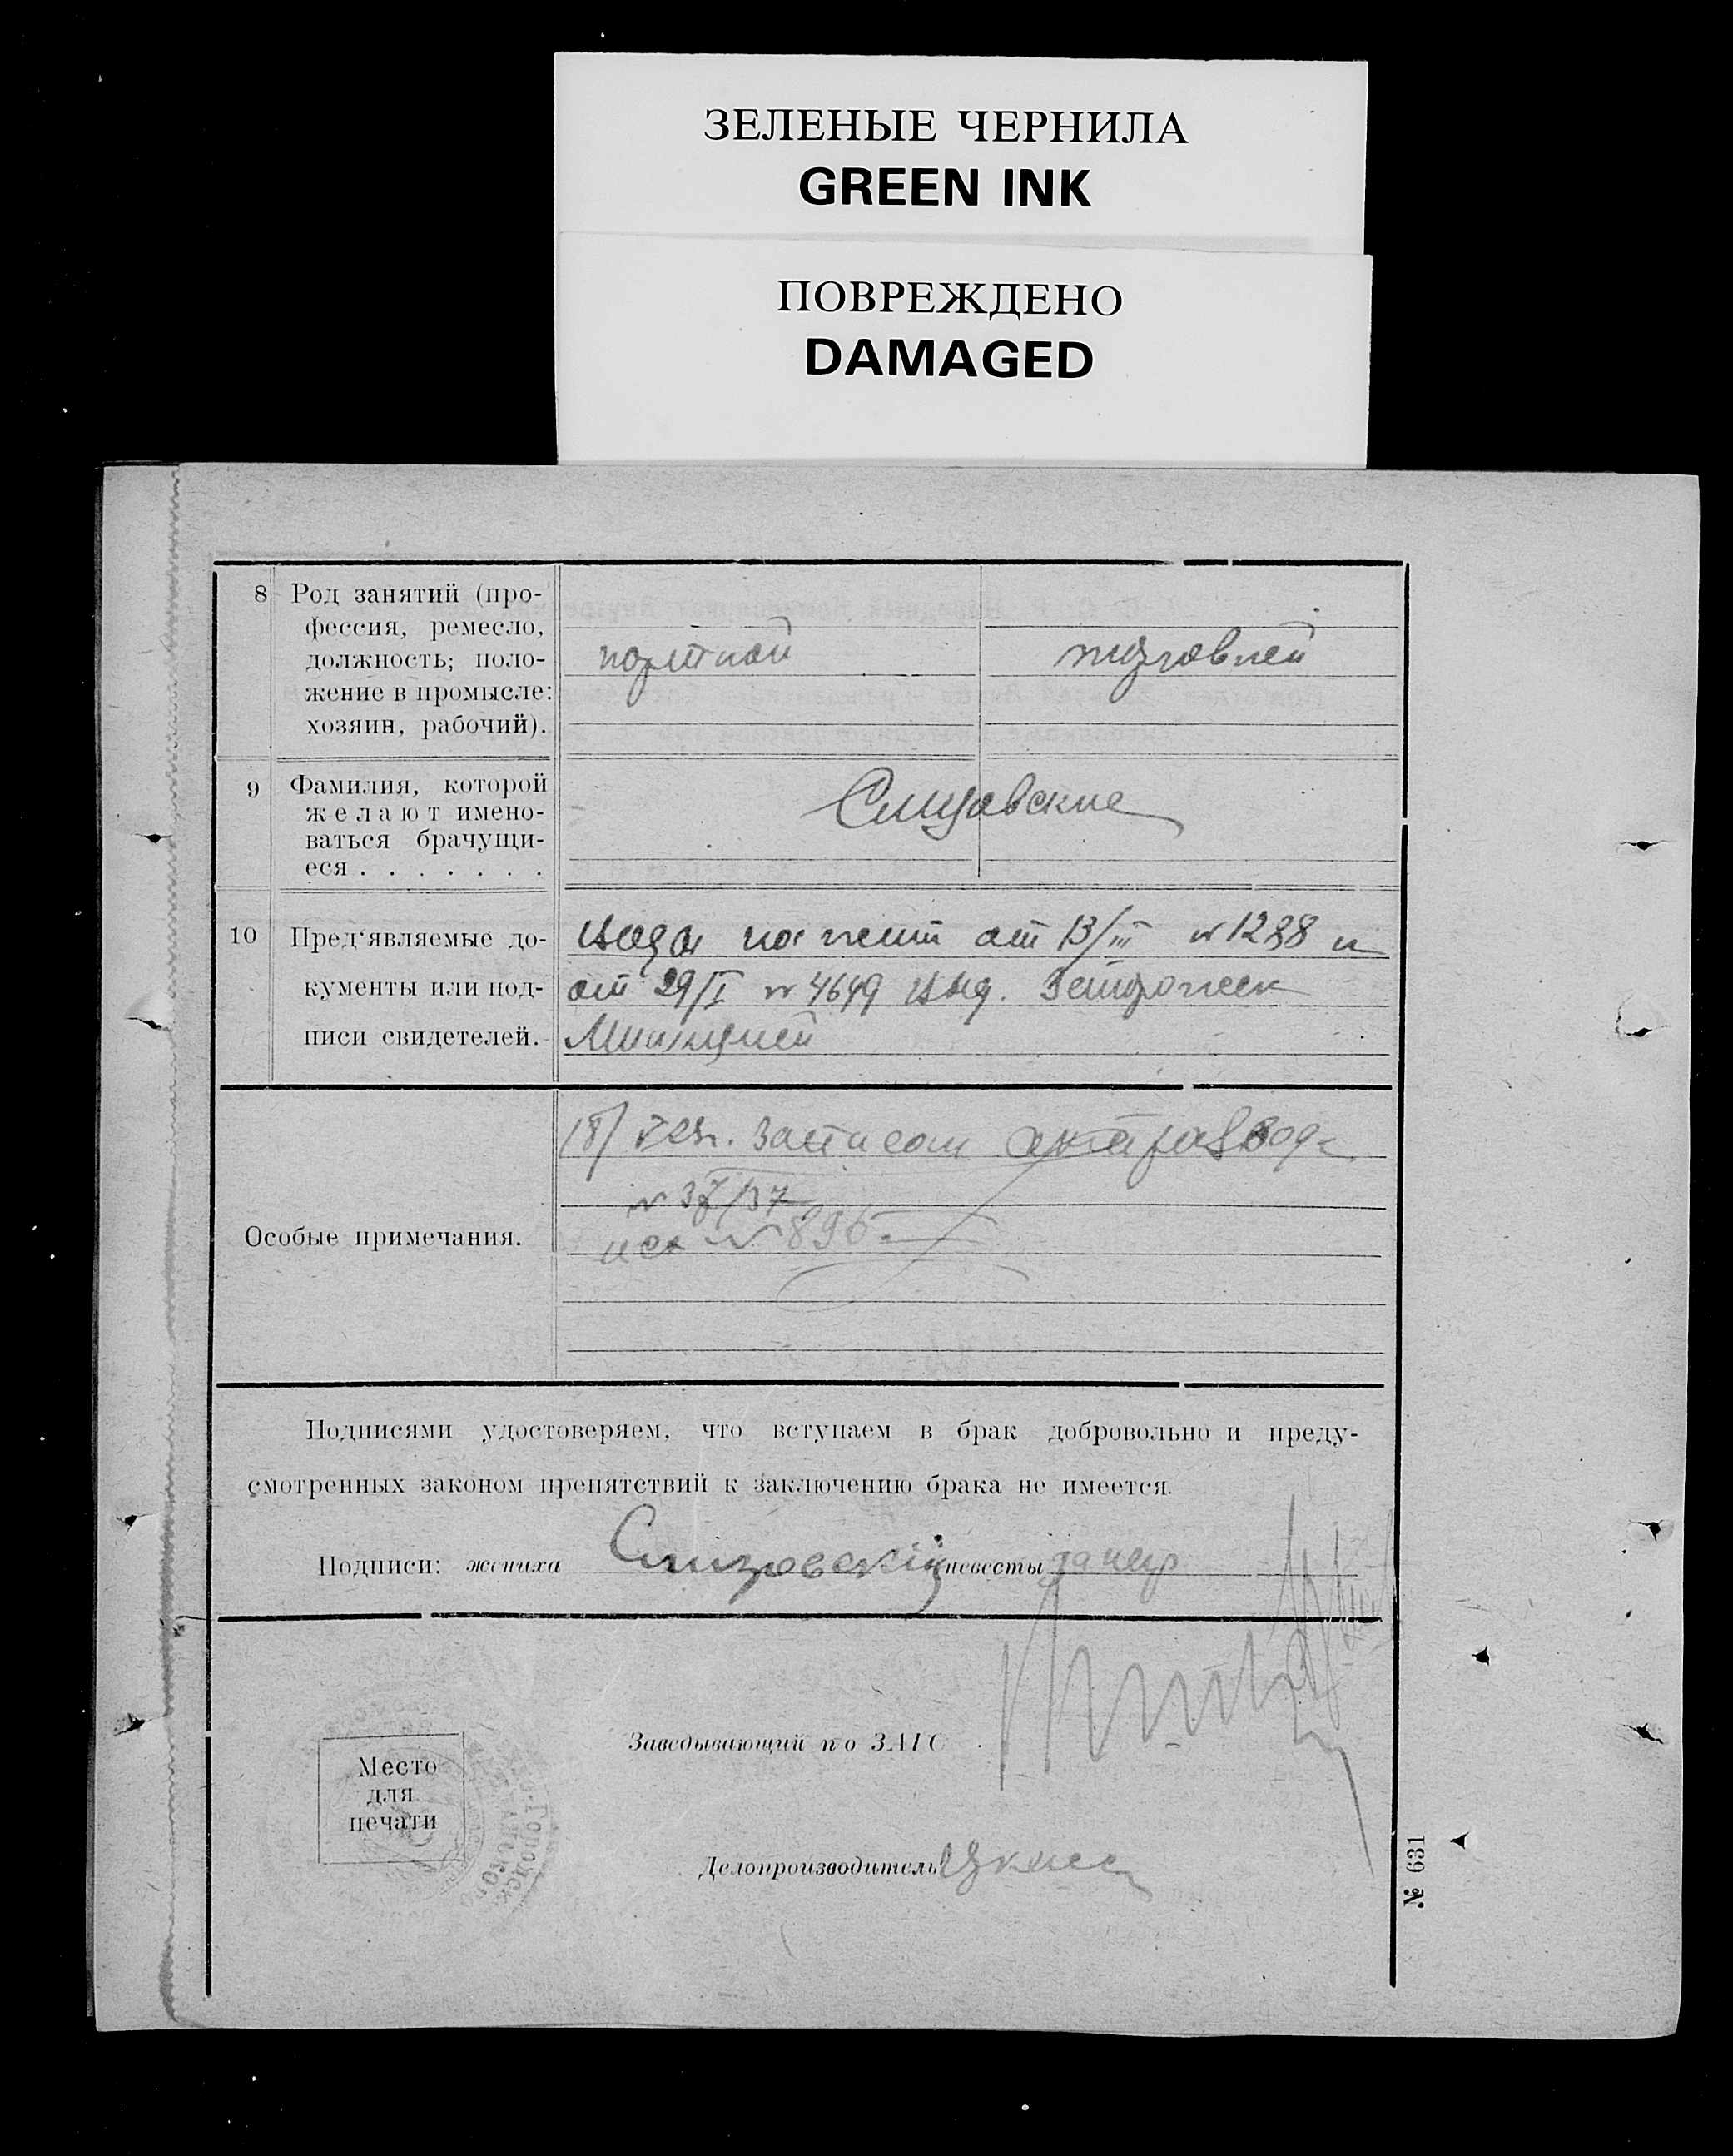 ЗЕЛЕНЫЕ ЧЕРНИЛА
GREEN INK
ПОВРЕЖДЕНО
DAMAGED
8 Род занятий (про-
фессия, ремесло,
должность; поло-
жение в промысле:
хозяин, рабочий).
портной
торговлей
9 Фамилия, которой
желают имено-
ваться брачущи-
еся . . . . . . .
10 Пред'являемые до-
кументы или под-
писи свидетелей.
от 13/III № 1288 и
от 29/I № 4649 выд.
Милицией
Особые примечания.
18/ записан акт развода
№ 895
Подписями удостоверяем, что вступаем в брак добровольно и преду-
смотренных законом препятствий к заключению брака не имеется.
Подписи: жениха невесты
Заведывающий по ЗАГС
Место
для
печати
Делопроизводитель
№ 631